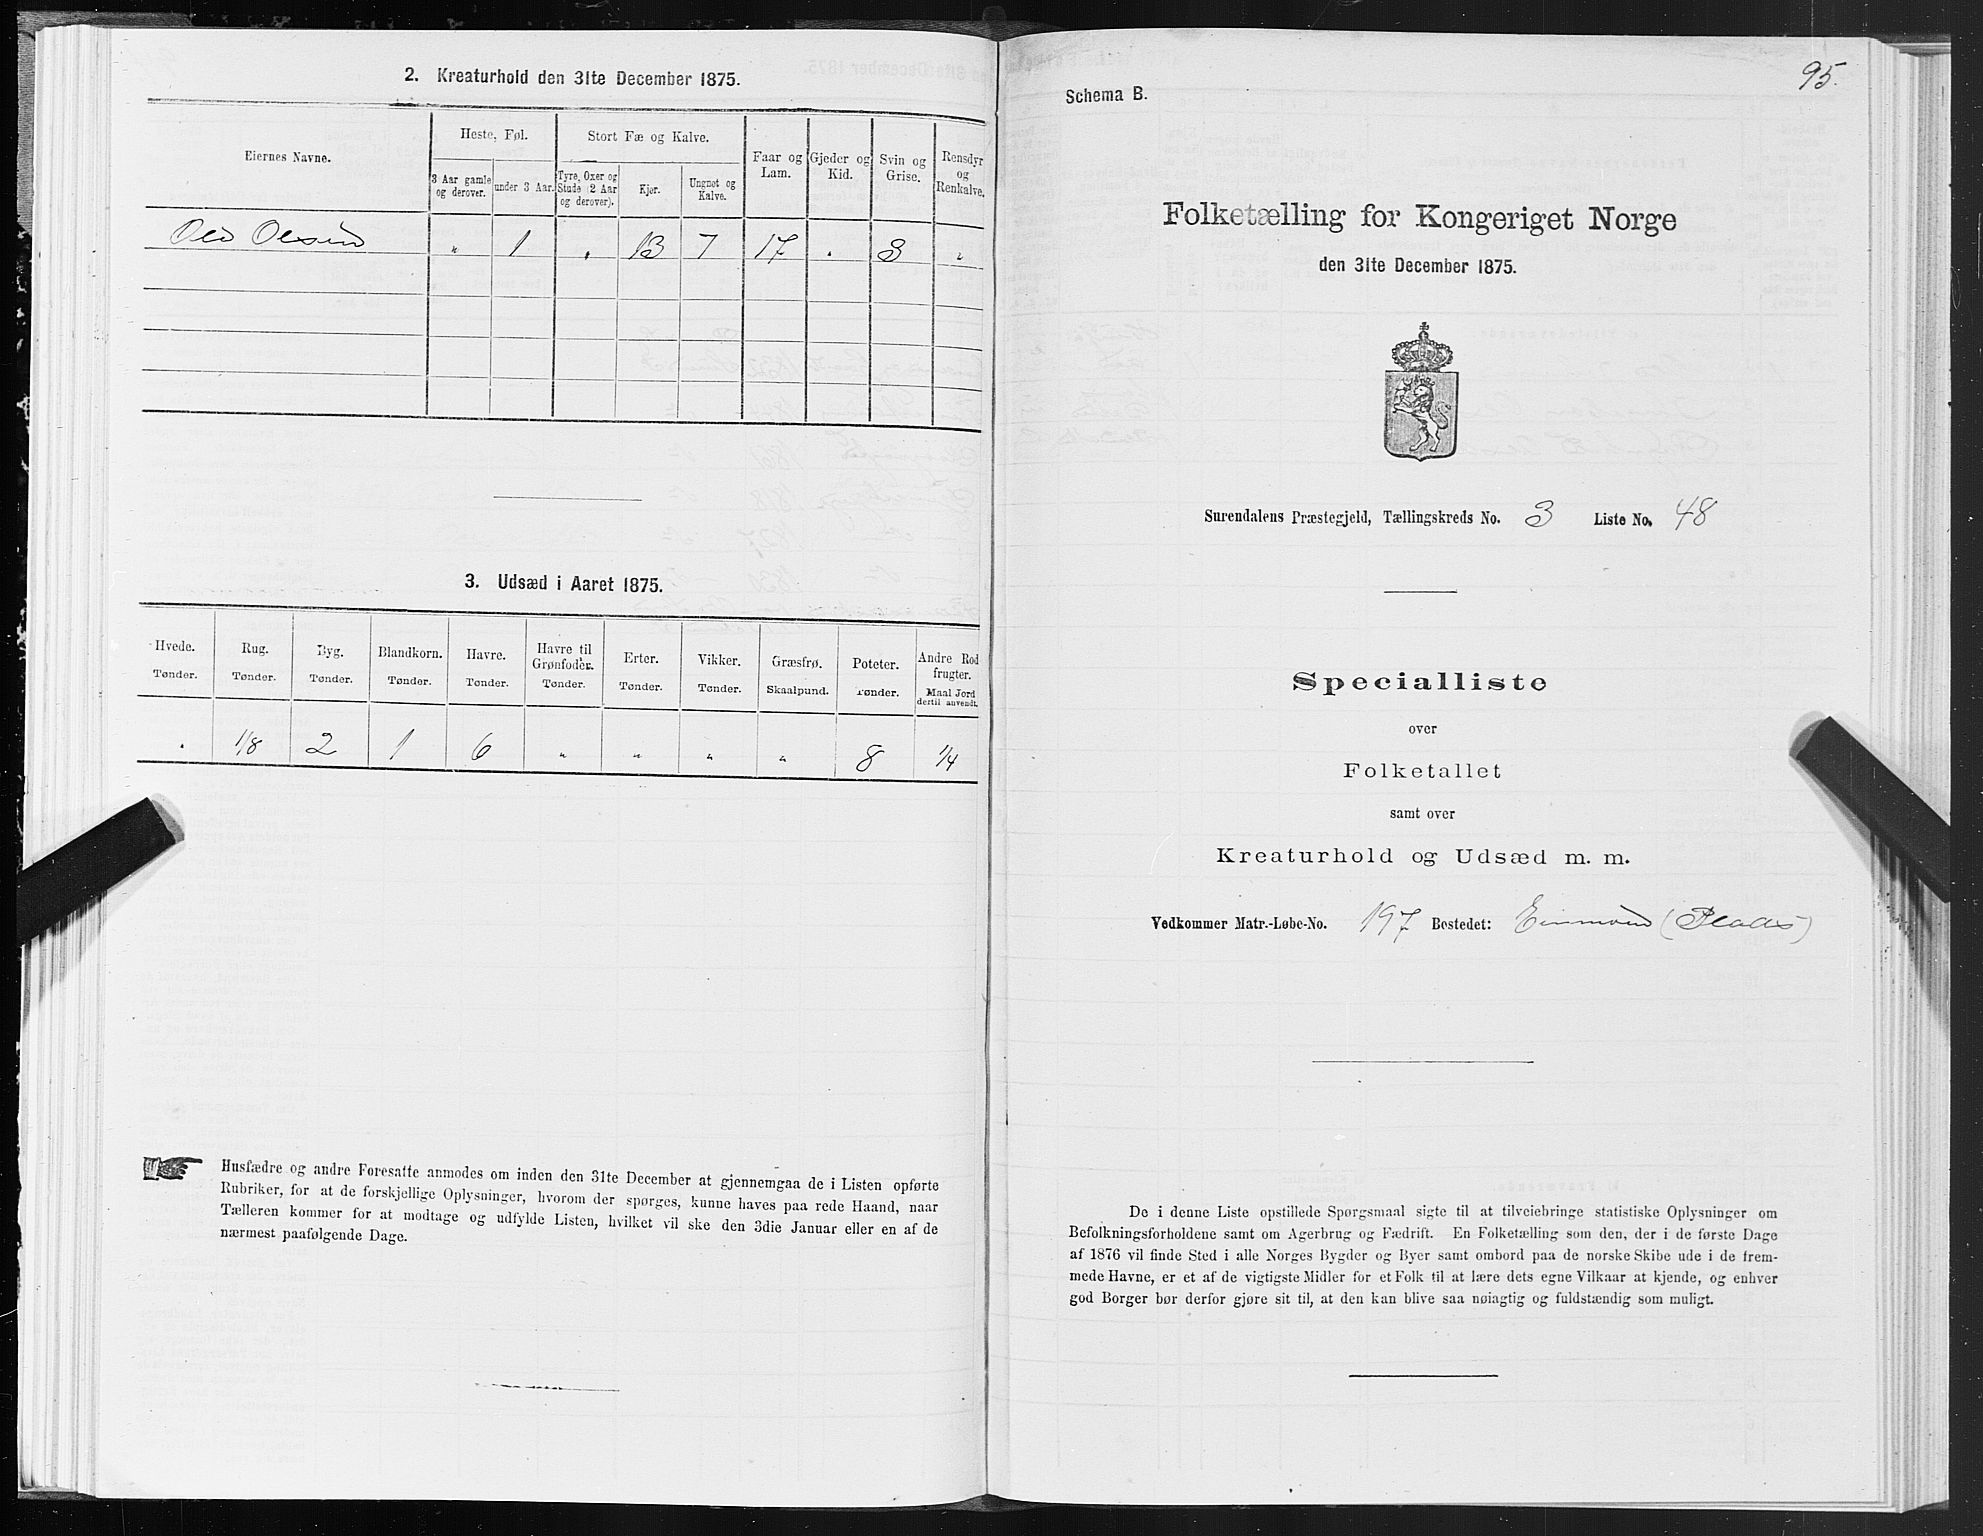 2. Kreaturhold den 31te December 1875.
Eiernes Navne.
Heste, Føl.
Stort Fæ og Kalve.
Faar og Lam.
Gjeder og Kid.
Svin og Grise.
Rensdyr og Renkalve.
3 Aar gamle og derover.
under 3 Aar.
Tyre, Oxer og Stude (2 Aar og derover).
Kjør.
Ungnøt og Kalve.
Ole Olsen " 1 " 13 7 17 " 3 "
3. Udsæd i Aaret 1875.
Hvede. Rug. Byg. Blandkorn. Havre. Havre til Grønfoder. Erter. Vikker. Græsfrø. Poteter. Andre Rodfrugter.
Tønder. Tønder. Tønder. Tønder. Tønder. Tønder. Tønder. Tønder. Skaalpund. Tønder. Maal Jord dertil anvendt.
" 1/8 2 1 6 " " " " 8 1/4
Husfædre og andre Foresatte anmodes om inden den 31te December at gjennemgaa de i Listen opførte
Rubriker, for at de forskjellige Oplysninger, hvorom der spørges, kunne haves paa rede Haand, naar
Tælleren kommer for at modtage og udfylde Listen, hvilket vil ske den 3die Januar eller en af de
nærmest paafølgende Dage.
95.
Schema B.
Folketælling for Kongeriget Norge
den 31te December 1875.
Surendalens Præstegjeld, Tællingskreds No. 3 Liste No. 48
Specialliste
over
Folketallet
samt over
Kreaturhold og Udsæd m. m.
Vedkommer Matr.-Løbe-No. 197 Bostedet: (Plads)
De i denne Liste opstillede Spørgsmaal sigte til at tilveiebringe statistiske Oplysninger om
Befolkningsforholdene samt om Agerbrug og Fædrift. En Folketælling som den, der i de første Dage
af 1876 vil finde Sted i alle Norges Bygder og Byer samt ombord paa de norske Skibe ude i de frem-
mede Havne, er et af de vigtigste Midler for et Folk til at lære dets egne Vilkaar at kjende, og enhver
god Borger bør derfor gjøre sit til, at den kan blive saa nøiagtig og fuldstændig som muligt.